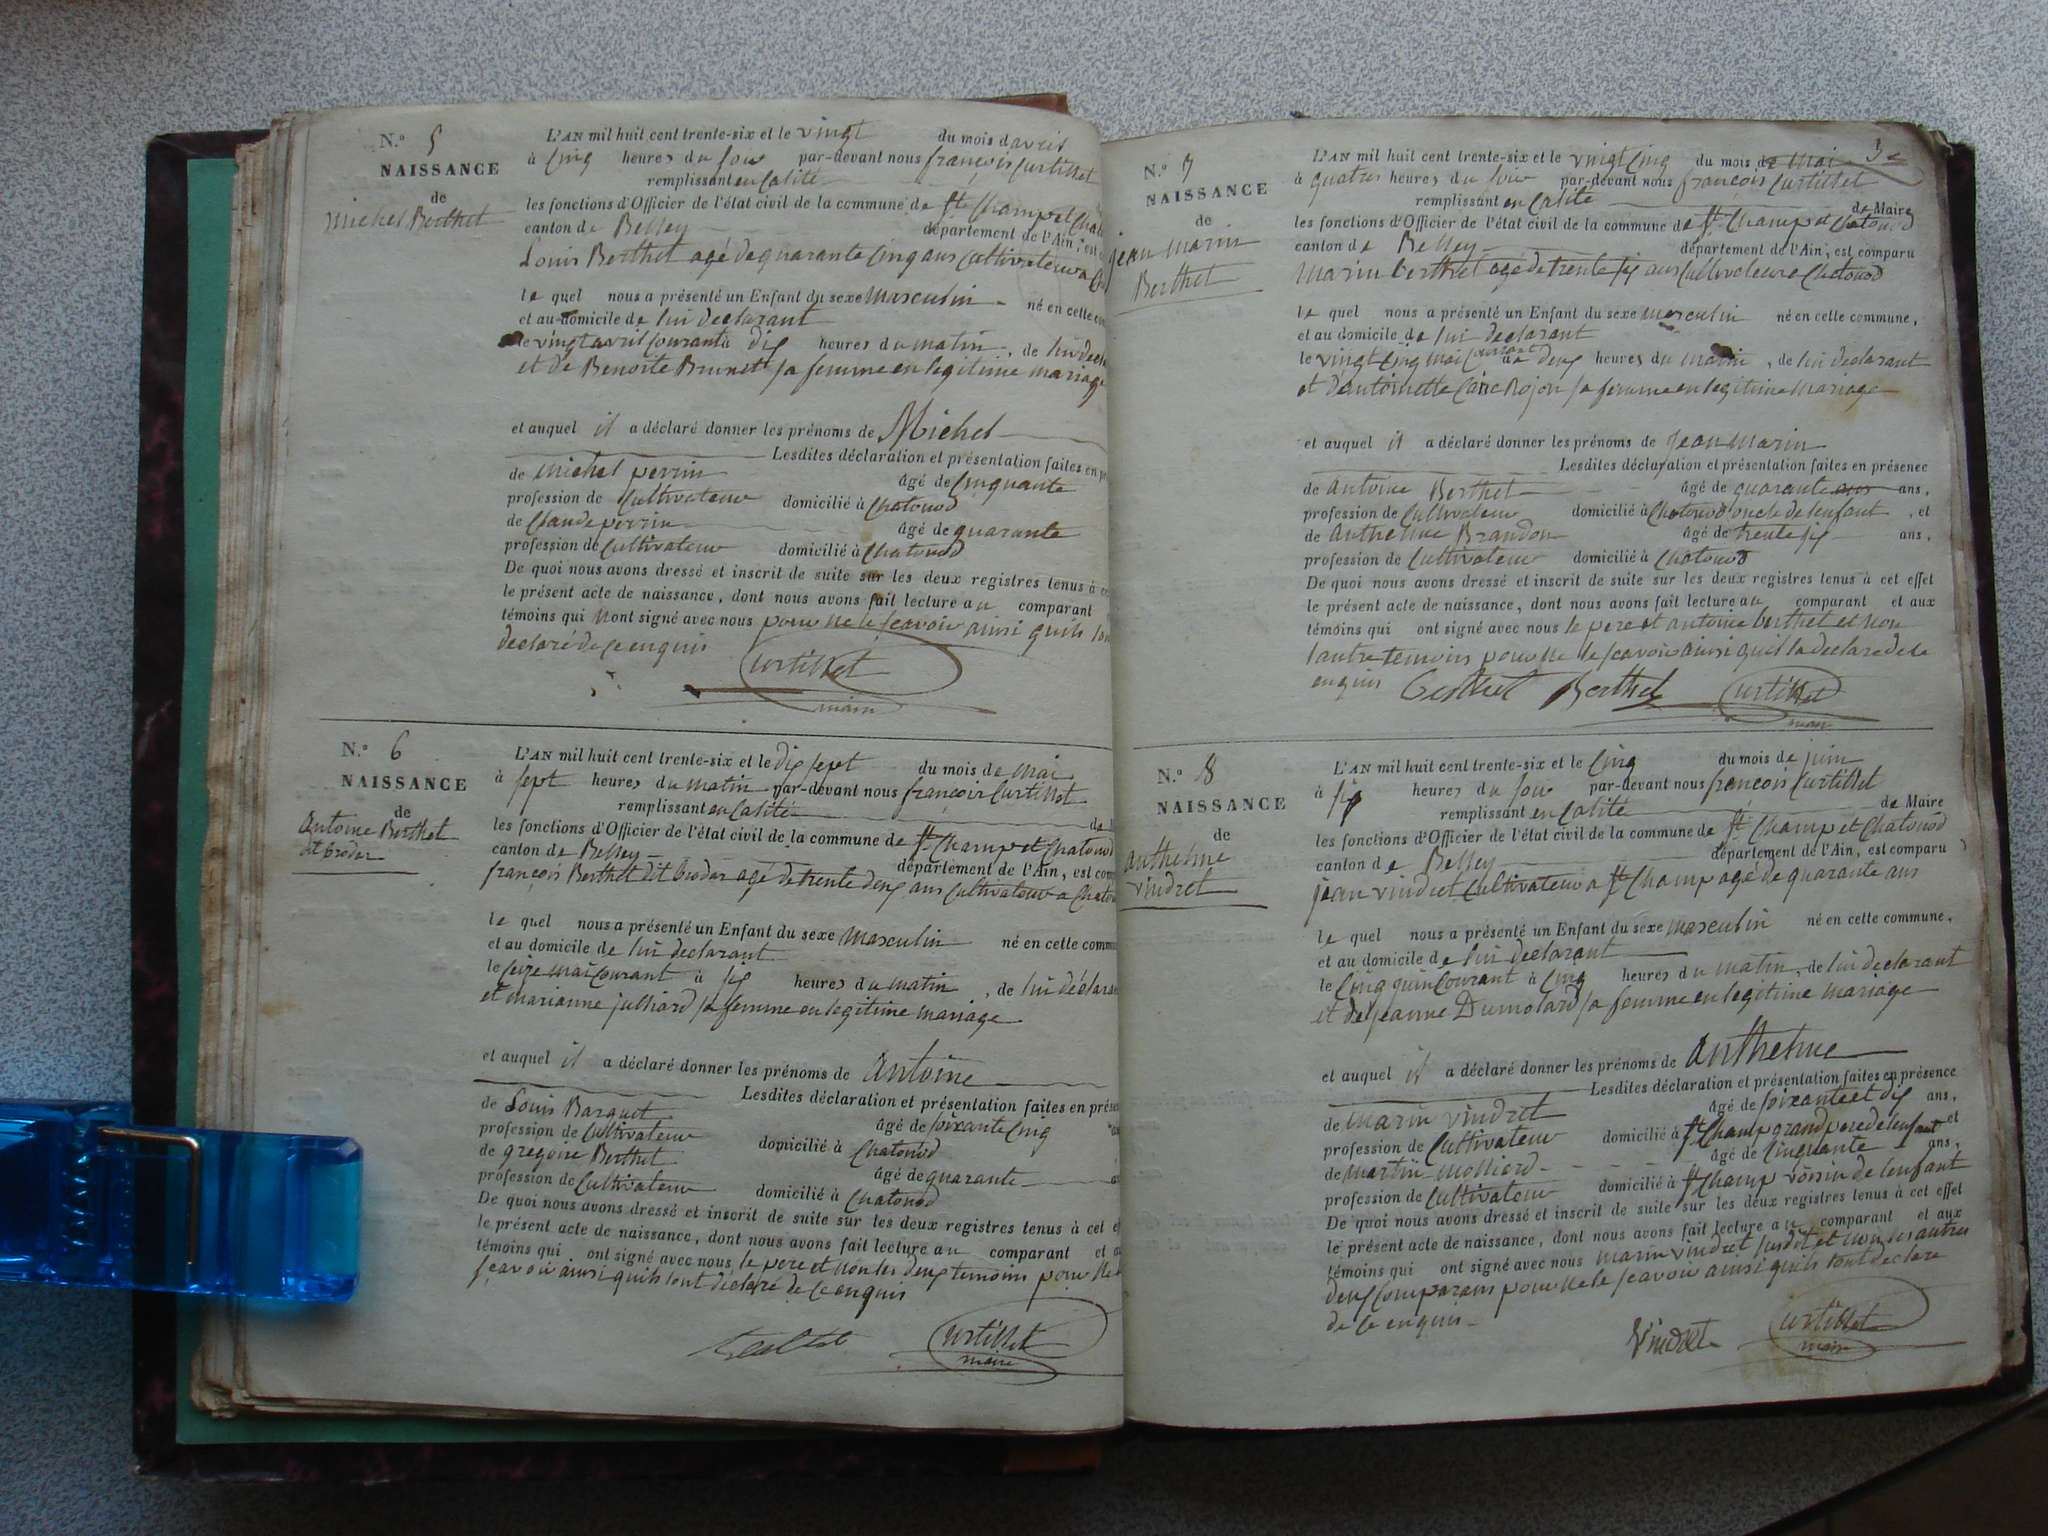 N.° 5
NAISSANCE
de
Michel Berthet
L'AN mil huit cent trente-six et le vingt du mois d avril
à Cinq heures du soir par-devant nous françois Curtillet
remplissant en Calité
les fonctions d'Officier de l'état civil de la commune de St Champ et Chat
canton de Belley département de l'Ain, est
Louis Berthet agé de quarante Cinq ans Cultivateur a
le quel nous a présenté un Enfant du sexe Masculin né en cette
et au domicile de lui declarant
le vingt avril Courant à dix heures du matin, de lui decla
et de Benoite Brunet sa femme en legitime mariage
et auquel il a déclaré donner les prénoms de Michel
Lesdites déclaration et présentation faites en
de Michel perrin âgé de Cinquante
profession de Cultivateur domicilié à Chatonod
de Claude perrin âgé de quarante
profession de Cultivateur domicilié à Chatonod
De quoi nous avons dressé et inscrit de suite sur les deux registres tenus à
le présent acte de naissance, dont nous avons fait lecture au comparant
témoins qui Nont signé avec nous pour ne le scavoir ainsi quils
declaré de ce enquis
Curtillet
maire
N.° 6
NAISSANCE
de
Antoine Berthet
dit brodar
L'AN mil huit cent trente-six et le dix sept du mois de Mai
à sept heures du matin par-devant nous françois Curtillet
remplissant en Calité de
les fonctions d'Officier de l'état civil de la commune de St Champ et Chatonod
canton de Belley département de l'Ain, est com
françois Berthet dit brodar agé de trente deux ans Cultivateur a Chatono
le quel nous a présenté un Enfant du sexe Masculin né en cette commu
et au domicile de lui declarant
le seize mai Courant à six heures du matin, de lui déclara
et marianne julliard sa femme en legitime mariage
et auquel il a déclaré donner les prénoms de Antoine
Lesdites déclaration et présentation faites en prése
de Louis Barquet âgé de soixante Cinq
profession de Cultivateur domicilié à Chatonod
de gregoire Berthet âgé de quarante
profession de Cultivateur domicilié à Chatonod
De quoi nous avons dressé et inscrit de suite sur les deux registres tenus à cet
le présent acte de naissance, dont nous avons fait lecture au comparant et
témoins qui ont signé avec nous le pere et non les deux temoins pour ne
scavoir ainsi quils lont declaré de ce enquis
Curtillet
maire
3e
N.° 7
NAISSANCE
de
jean marin
Berthet
L'AN mil huit cent trente-six et le vingt Cinq du mois de Mai
à quatres heures du soir par-devant nous francois Curtillet
remplissant en Calité de Maire
les fonctions d'Officier de l'état civil de la commune de St Champ et Chatonod
canton de Belley département de l'Ain, est comparu
Marin berthet agé de trente six ans Cultivateur a Chatonod
le quel nous a présenté un Enfant du sexe masculin né en cette commune,
et au domicile de lui declarant
le vingt Cinq mai courant à deux heures du matin, de lui declarant
et dantoinette Rojon sa femme en legitime Mariage
et auquel il a déclaré donner les prénoms de jean marin
Lesdites déclaration et présentation faites en présence
de Antoine Berthet âgé de quarante ans ans,
profession de Cultivateur domicilié à Chatonod oncle de lenfant, et
de Anthelme Brandon âgé de trente six ans,
profession de Cultivateur domicilié à Chatonod
De quoi nous avons dressé et inscrit de suite sur les deux registres tenus à cet effet
le présent acte de naissance, dont nous avons fait lecture au comparant et aux
témoins qui ont signé avec nous le pere et antoine berthet et non
lautre temoins pour ne le scavoir ainsi quil la declare de ce
enquis Berthet Berthet Curtillet
maire
N.° 8
NAISSANCE
de
anthelme
vindret
L'AN mil huit cent trente-six et le Cinq du mois de juin
à six heures du soir par-devant nous françois Curtillet
remplissant en Calité de Maire
les fonctions d'Officier de l'état civil de la commune de St Champ et Chatonod
canton de Belley département de l'Ain, est comparu
jean vindret Cultivateur a St Champ agé de quarante ans
le quel nous a présenté un Enfant du sexe masculin né en cette commune,
et au domicile de lui declarant
le Cinq juin Courant à Cinq heures du matin, de lui declarant
et de jeanne Dumolard sa femme en legitime mariage
et auquel il a déclaré donner les prénoms de Anthelme
Lesdites déclaration et présentation faites en présence
de Marin vindret âgé de soixante et dix ans,
profession de Cultivateur domicilié à St Champ grand pere de lenfant et
de Martin Molliard âgé de Cinquante ans,
profession de Cultivateur domicilié à St Champ voisin de lenfant
De quoi nous avons dressé et inscrit de suite sur les deux registres tenus à cet effet
le présent acte de naissance, dont nous avons fait lecture au comparant et aux
témoins qui ont signé avec nous marin vindret susdit et non les autres
deux Comparans pour ne le scavoir ainsi quils lont declare
de ce enquis
Vindret Curtillet
maire